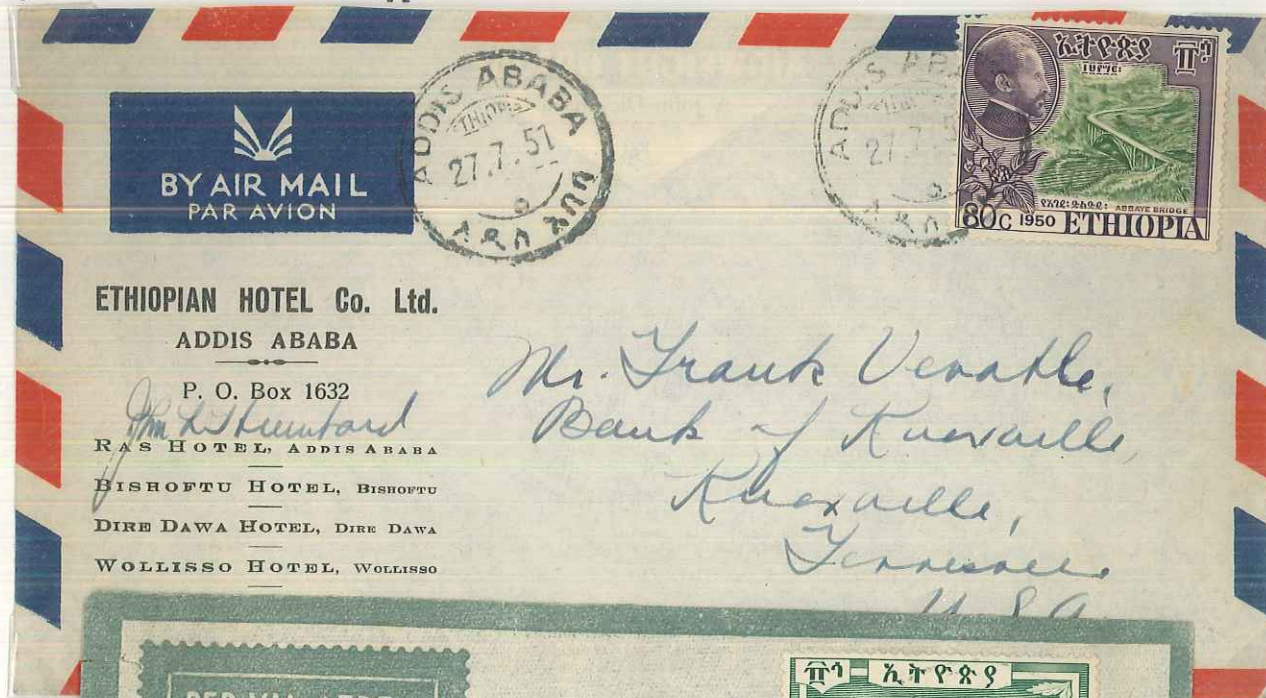 BY AIR MAIL
PAR AVION
ADDIS ABABA
ETHIOPIE
27.7.51
አዲስ አበባ
ADDIS ABA
27.7.5
አዲስ
ኢትዮጵያ
፹ሳ
፲፱፻፵፫
የአባይ፡ድልድይ፡ ABBAYE BRIDGE
80C 1950 ETHIOPIA
ETHIOPIAN HOTEL Co. Ltd.
ADDIS ABABA
P. O. Box 1632
RAS HOTEL, ADDIS ABABA
BISHOFTU HOTEL, BISHOFTU
DIRE DAWA HOTEL, DIRE DAWA
WOLLISSO HOTEL, WOLLISSO
Mr. Frank Venable,
Bank of Knoxville,
Knoxville,
Tennessee
U.S.A.
ኢትዮጵያ